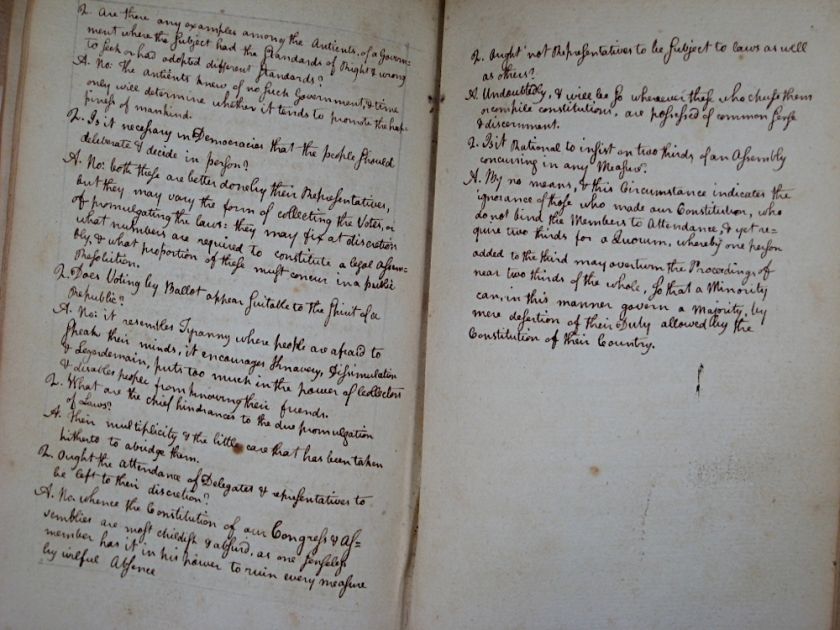 Q. Are there any examples among the Antients, of a Govern-
ment where the Subject had the Standards of Right & wrong
to seek or had adopted different Standards?
A. No: The Antients knew of no such Government, & time
only will determine whether it tends to promote the hap-
piness of mankind.
Q. Is it necessary in Democracies that the people should
deliberate & decide in person?
A. No: both these are better done by their Representatives,
but they may vary the form of collecting the Votes, or
of promulgating the laws: they may fix at discretion
what numbers are required to constitute a legal Assem-
bly, & what proportion of these must concur in a public
Resolution.
Q. Does Voting by Ballot appear suitable to the Spirit of a
Republic?
A. No: it resembles Tyranny where people are afraid to
speak their minds, it encourages Knavery, Dissimulation
& Legerdemain, puts too much in the power of Collectors
& disables people from knowing their friends.
Q. What are the chief hindrances to the due promulgation
of Laws?
A. Their multiplicity & the little care that has been taken
hitherto to abridge them.
Q. Ought the attendance of Delegates & representatives to
be left to their discretion?
A. No: whence the Constitution of our Congress & As-
semblies are most childish & absurd, as one senseless
member has it in his power to ruin every measure
by wilful Absence
Q. Ought not Representatives to be subject to laws as well
as others?
A. Undoubtedly, & will be so wherever these who chuse them
or compile constitutions, are possessed of common sense
& discernment.
Q. Is it Rational to insist on two thirds of an Assembly
concurring in any Measure.
A. By no means, & this Circumstance indicates the
ignorance of those who made our Constitution, who
do not bind the Members to Attendance, & yet re-
quire two thirds for a Quorum, whereby one person
added to the third may overturn the Proceedings of
near two thirds of the whole, so that a Minority
can, in this manner govern a Majority, by
mere desertion of their Duty allowed by the
Constitution of their Country.